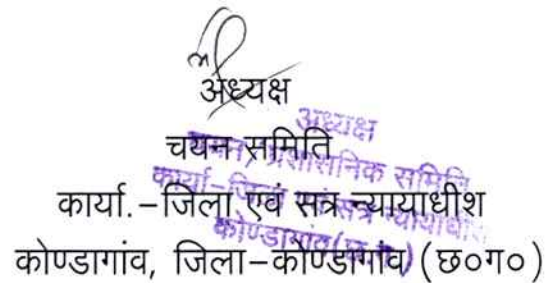 अध्यक्ष
चयन समिति
कार्या.–जिला एवं सत्र न्यायाधीश
कोण्डागांव, जिला–कोण्डागांव (छ०ग०)
अध्यक्ष
प्रशासनिक समिति
कार्या–जिला एवं सत्र न्यायाधीश
कोण्डागांव (छ.ग.)